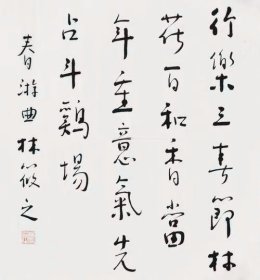 行樂三春節林
花百和香當
年重意氣先
占斗鷄場
春游曲 林筱之